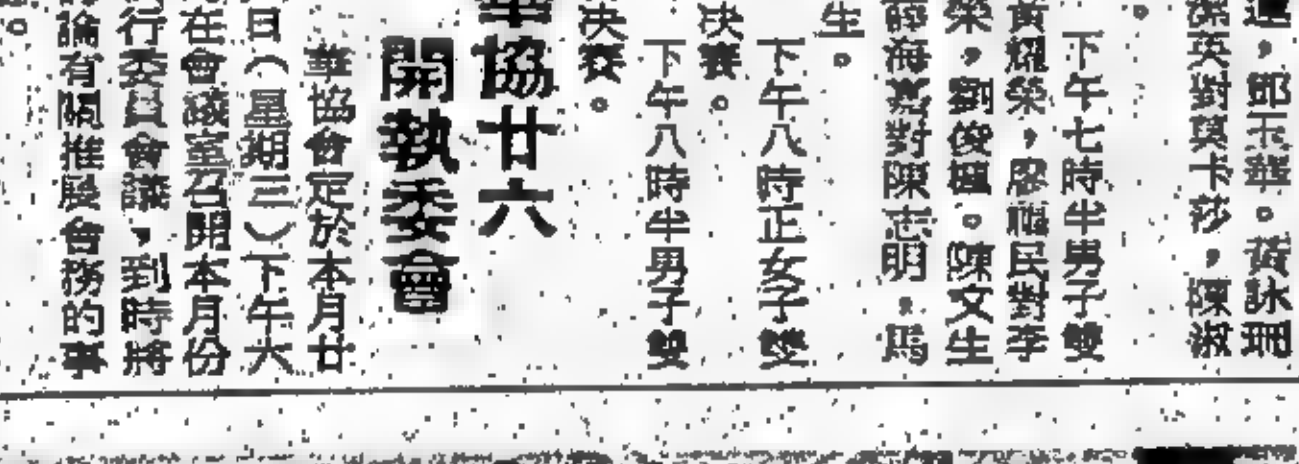 鄧玉華。黃詠珊
英對吳卡莎，陳淑
下午七時半男子雙
黃耀榮，廖福民對李
榮，劉俊強。陳文生
薛海嵩對陳志明，馬
生。
下午八時正女子雙
決賽。
下午八時半男子雙
決賽。
華協廿六
開執委會
華協會定於本月廿
日（星期三）下午六
在會議室召開本月份
行委員會議，到時將
論有關推展會務的事